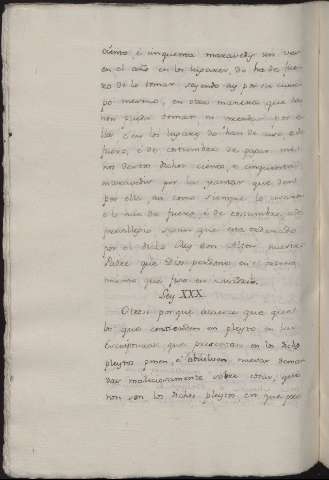 ciento, é cinquenta maravedis una vez
en el año en los lugares, do ha de fue-
ro de lo tomar seyendo ay por su cuer-
po mesmo, en otra manera que la
non pueda tomar, ni recudar por e-
lla: é en los lugares do han de uso, é de
fuero, é de costumbre de pagar me-
nos destos dichos ciento, é cinquenta
maravedis por la yantar que den
por ella, asi como siempre lo usaron
é lo han de fuero, é de costumbre, é de
previllegio segun que esta ordenado
por el dicho Rey Don Alfon nuestro
Padre que Dios perdone en el
que fizo en
Ley XXX.
Otrosi porque acaesce que aque-
llos que contienden en pleyto en las
que procesan en los dichos
pleytos ponen, é nuevas deman-
das maliciosamente sobre cosas, que
non son los dichos pleytos, en que pro-